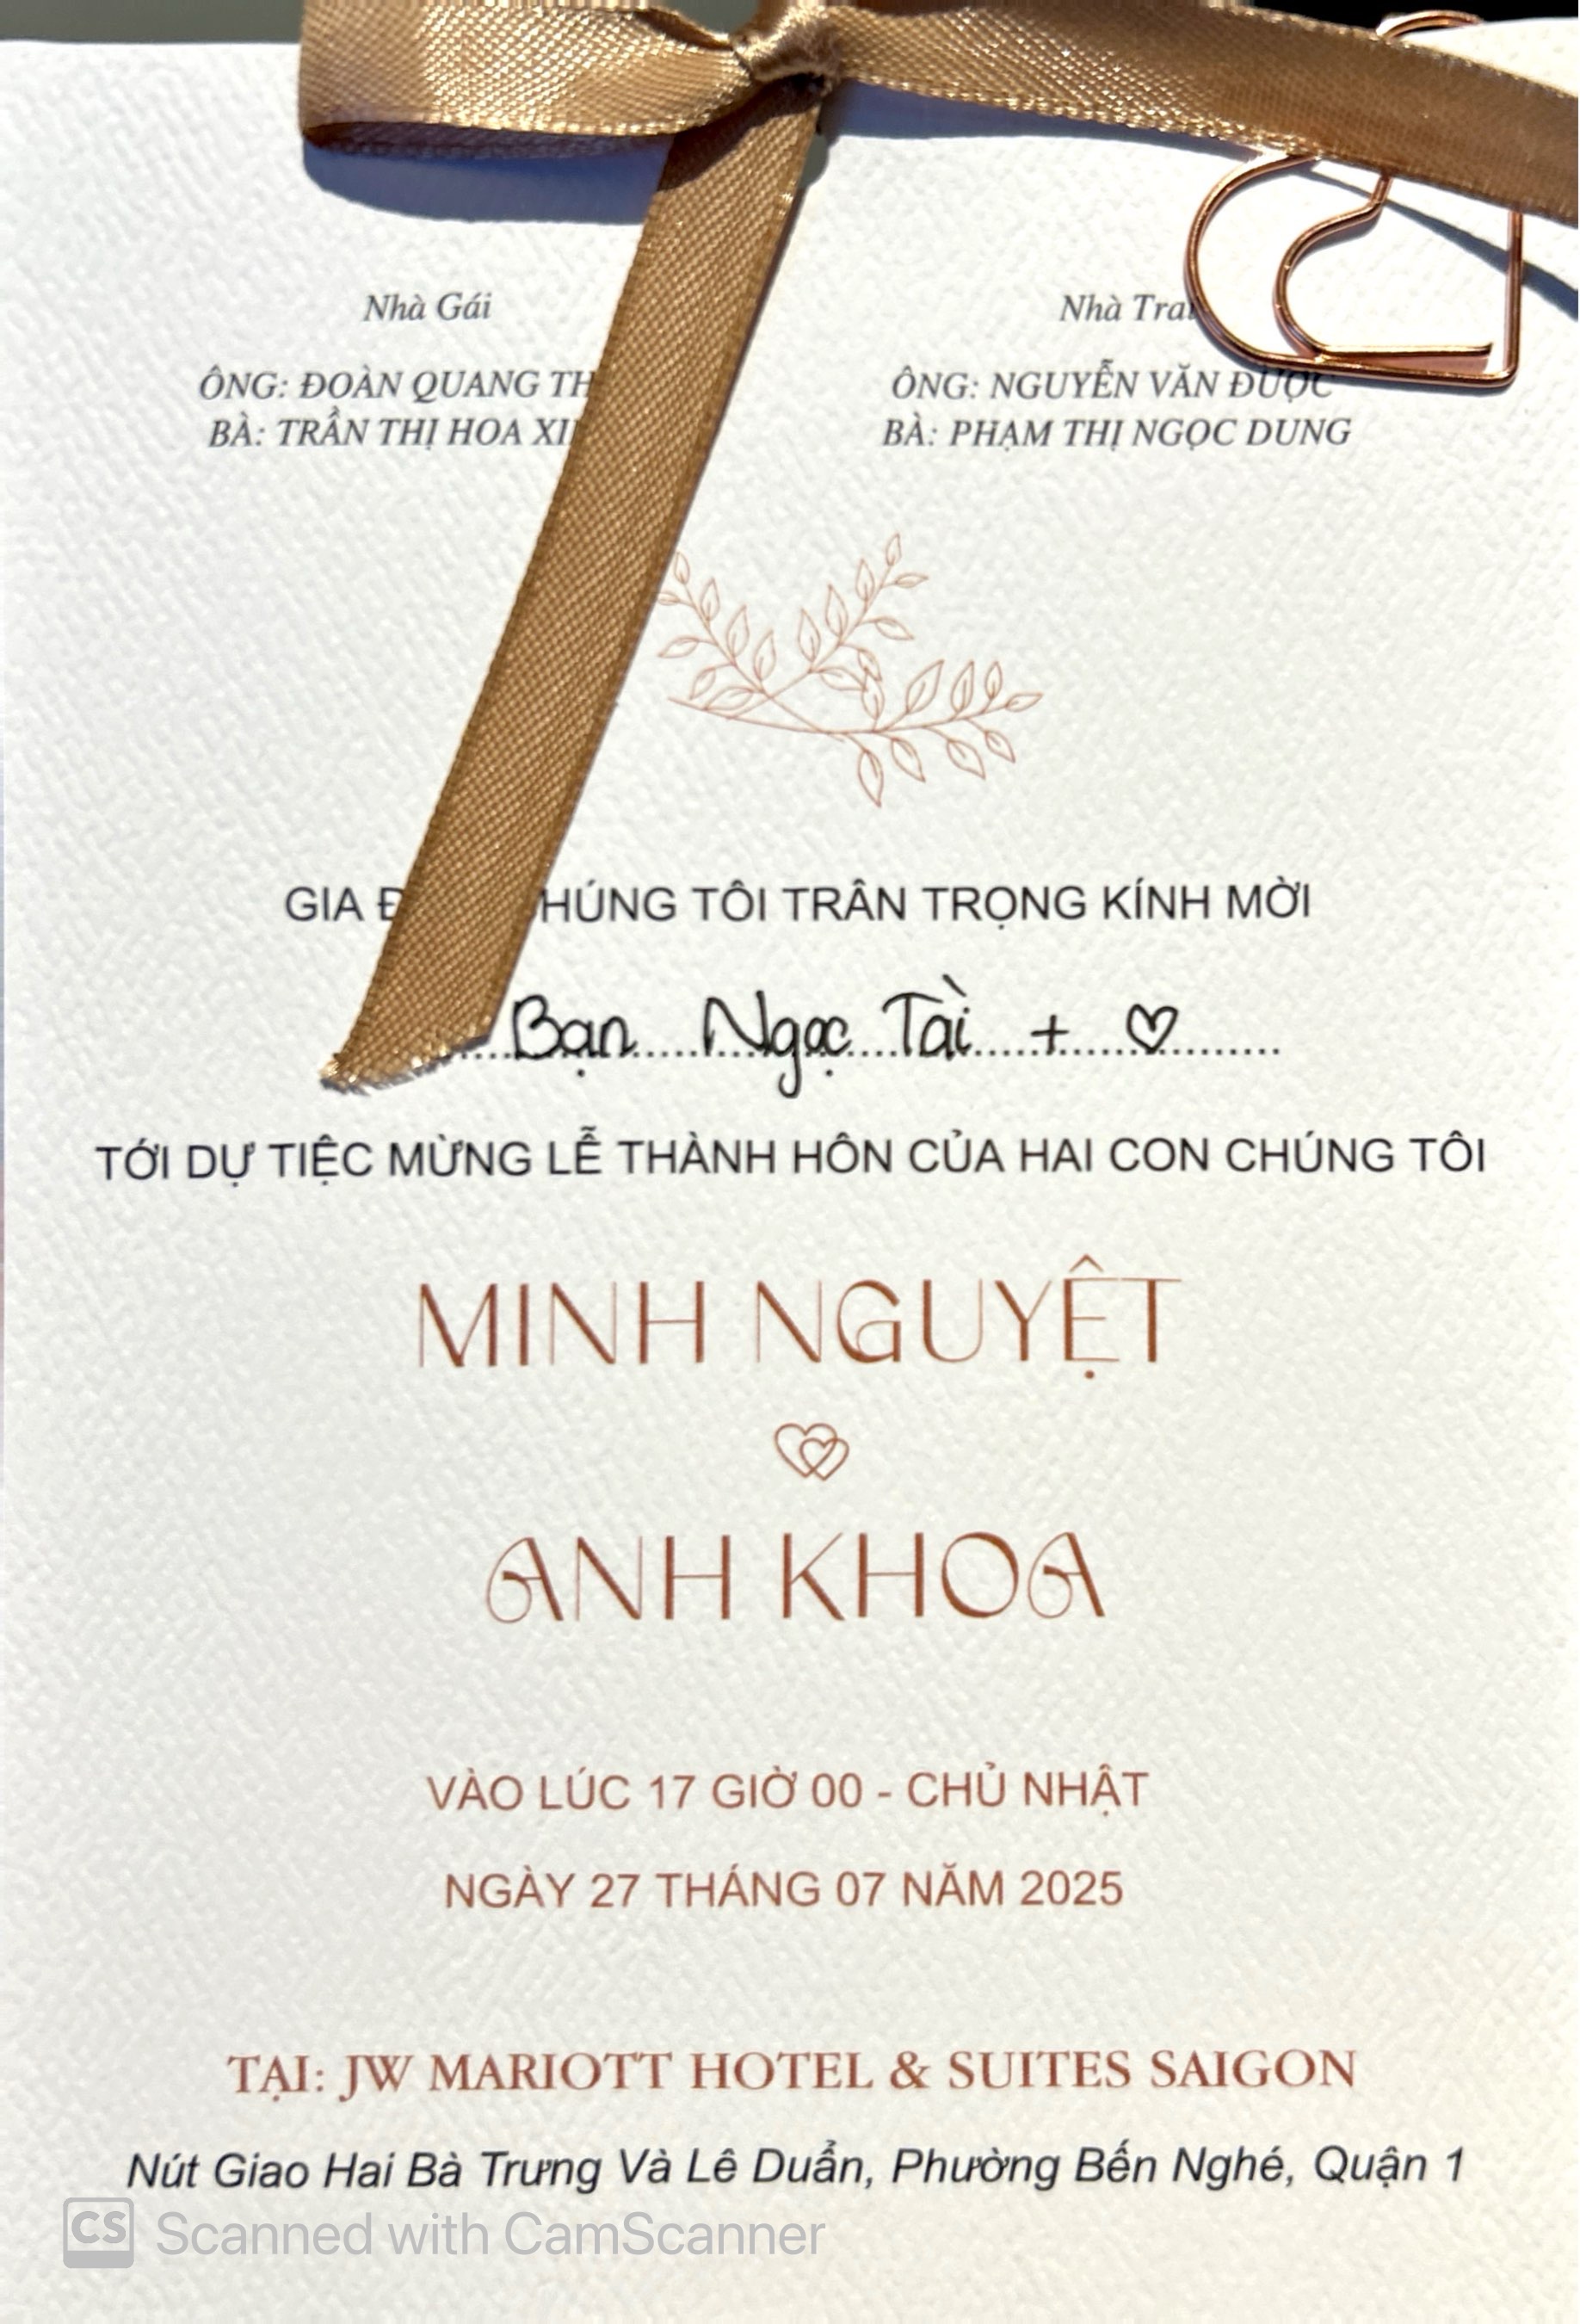 Nhà Gái
ÔNG: ĐOÀN QUANG
BÀ: TRẦN THỊ HOA
Nhà Trai
ÔNG: NGUYỄN VĂN ĐƯỢC
BÀ: PHẠM THỊ NGỌC DUNG
GIA CHÚNG TÔI TRÂN TRỌNG KÍNH MỜI
Bạn Ngọc Tài + ♡
TỚI DỰ TIỆC MỪNG LỄ THÀNH HÔN CỦA HAI CON CHÚNG TÔI
MINH NGUYỆT
ANH KHOA
VÀO LÚC 17 GIỜ 00 - CHỦ NHẬT
NGÀY 27 THÁNG 07 NĂM 2025
TẠI: JW MARIOTT HOTEL & SUITES SAIGON
Nút Giao Hai Bà Trưng Và Lê Duẩn, Phường Bến Nghé, Quận 1
CS Scanned with CamScanner